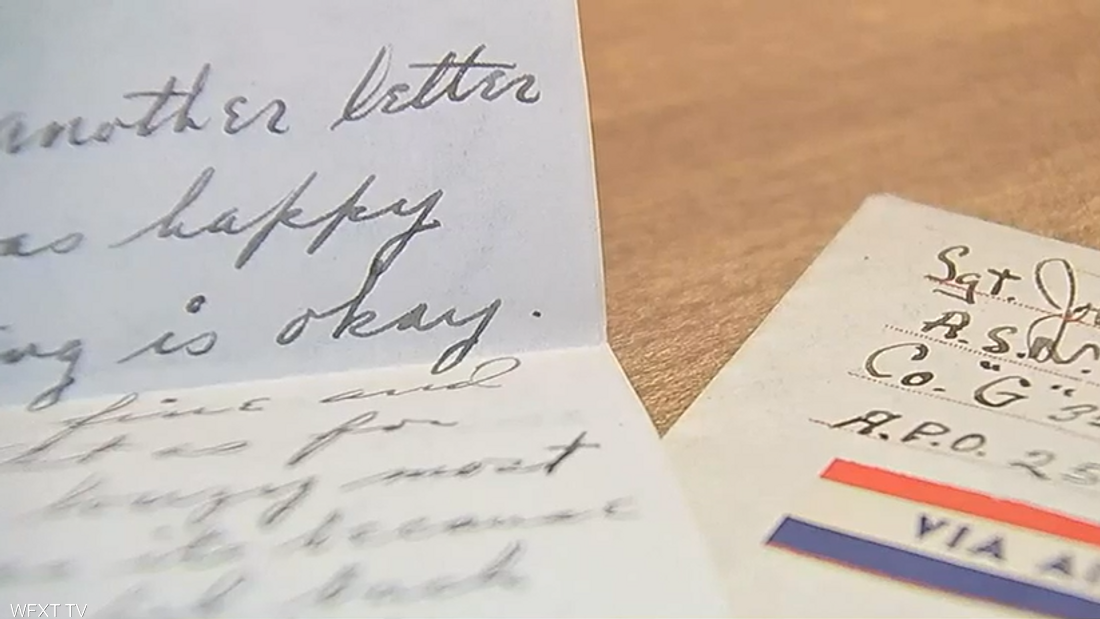 another letter
as happy
ng is okay.
fine and
as for
lousy most
its because
back
Sgt. Jo
A.S.N.
Co. "G" 3
A.P.O. 25
VIA AI
WFXT TV